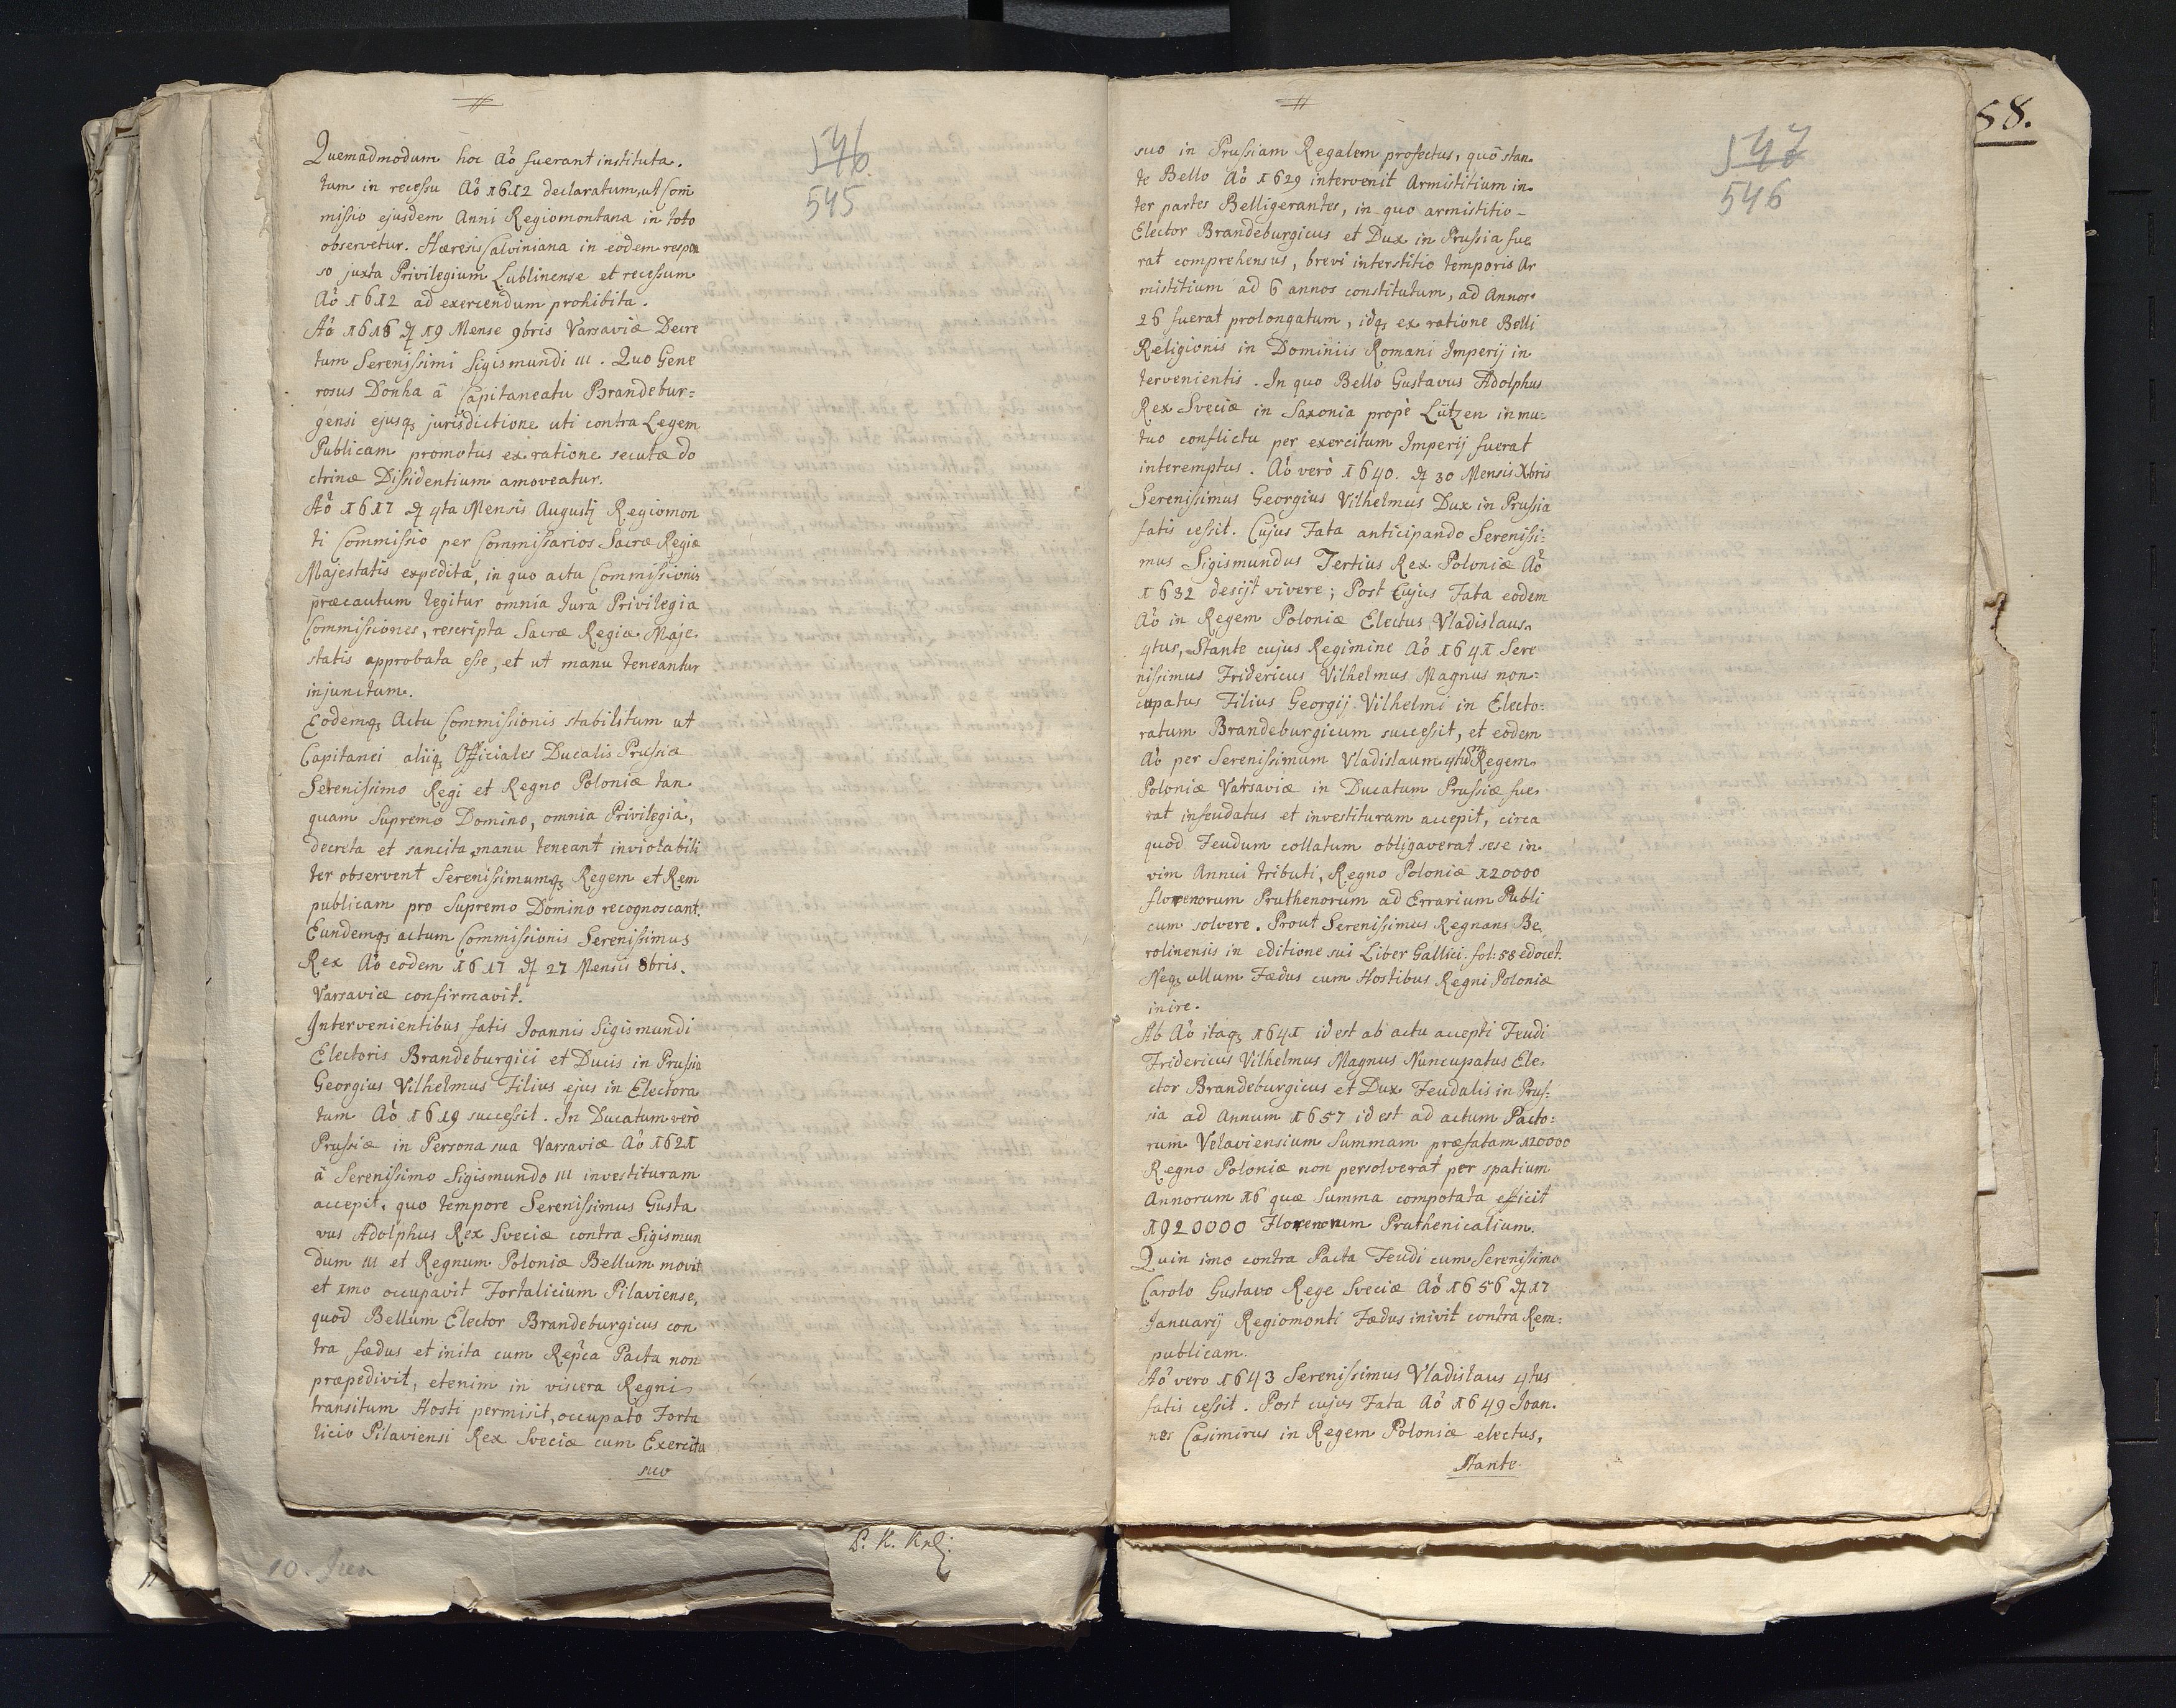 546.
545
Quemadmodum hoc Aõ fuerant instituta.
tum in recessu Aõ 1612 declaratum, ut Com̃
missio ejusdem Anni Regiomontana in toto
observetur. Hæresis Calviniana in eodem respon
so juxta Privilegium Lublinense et recessum
Aõ 1612 ad exercendum prohibita.
Aõ 1616 19 Mense 9bris Varsaviæ Decre
tum Serenissimi Sigismundi III. Quo Gene
rosus Donha â Capitaneatu Brandebur=
gensi ejusq, jurisdictione uti contra Legem
Publicam promotus ex ratione secutæ do
ctrinæ Dissidentium amoveatur.
Aõ 1617 4ta Mensis Augustj Regiomon
ti Commissio per Commissarios Sacræ Regiæ
Majestatis expedita, in quo actu Commissionis
præcautum legitur omnia Jura Privilegia
Commissiones, rescripta Sacræ Regiæ Maje.
statis approbata esse, et ut manu teneantur
injunctum.
Eodemq, Actu Commissionis stabilitum ut
Capitanei aliiq, Officiales Ducalis Prussiæ
Serenissimo Regi et Regno Poloniæ tan.
quam Supremo Domino, omnia Privilegia,
decreta et sancita manu teneant inviolabili
ter observent Serenissimumq, Regem et Rem
publicam pro Supremo Domino recognoscant.
Eundemq, actum Commissionis Serenissimus
Rex Aõ eodem 1617 27 Mensis 8bris.
Varsaviæ confirmavit.
Intervenientibus fatis Joannis Sigismundi
Electoris Brandeburgici et Ducis in Prussia
Georgius Vilhelmus Filius ejus in Electora
tum Aõ 1619 successit. In Ducatum verò
Prussiæ in Persona sua Varsaviæ Aõ 1621
â Serenissimo Sigismundo III investituram
accepit, quo tempore Serenissimus Gusta
vus Adolphus Rex Sveciæ contra Sigismun
dum III et Regnum Poloniæ Bellum movit
et 1mo occupavit Fortalicium Pilaviense,
quod Bellum Elector Brandeburgicus con
tra fædus et inita cum Rep̃ca Pacta non
præpedivit, etenim in viscera Regni
transitum Hosti permisit, occupato Forta
licio Pilaviensi Rex Sveciæ cum Exercitu
suo
P. K.
10.
58.
547
546
suo in Prussiam Regalem profectus, quô stan.
te Bello Aõ 1629 intervenit Armistitium in.
ter partes Belligerantes, in quo armistitio
Elector Brandeburgicus et Dux in Prussia fue
rat comprehensus, brevi interstitio temporis Ar
mistitium ad 6 annos constitutum, ad Annos
26 fuerat prolongatum, idq, ex ratione Belli
Religionis in Dominiis Romani Imperij in
tervenientis. In quo Bello Gustavus Adolphus
Rex Sveciæ in Saxonia propè Lützen in mu=
tuo conflictu per exercitum Imperij fuerat
interemptus. Aõ verò 1640. 30 Mensis Xbris
Serenissimus Georgius Vilhelmus Dux in Prussia
fatis cessit. Cujus Fata anticipando Serenissi=
mus Sigismundus Tertius Rex Poloniæ Aõ
1632 desijt vivere; Post Cujus Fata eodem
Aõ in Regem Poloniæ Electus Vladislaus
4tus, Stante cujus Regimine Aõ 1641 Sere
nissimus Fridericus Vilhelmus Magnus non=
cupatus Filius Georgij Vilhelmi in Electo=
ratum Brandeburgicum successit, et eodem
Aõ per Serenissimum Vladislaum 4tum Regem
Poloniæ Varsaviæ in Ducatum Prussiæ fue.
rat infeudatus et investituram accepit, circa
quod Feudum collatum obligaverat sese in.
vim Annui tributi, Regno Poloniæ 120000
florenorum Pruthenorum ad Errarium Publi
cum solvere. Prout Serenissimus Regnans Be.
rolinensis in editione sui Liber Gallici. fol: 58 edocet.
Neq, ullum Fædus cum Hostibus Regni Poloniæ
inire.
Ab Aõ itaq, 1641 id est ab actu accepti Feudi
Fridericus Vilhelmus Magnus Nuncupatus Ele.
ctor Brandeburgicus et Dux Feudalis in Prus=
sia ad Annum 1657 id est ad actum Pacto=
rum Velaviensium Summam præfatam 120000
Regno Poloniæ non persolverat per spatium
Annorum 16 quæ Summa compotata efficit
1920000 Florenorum Pruthenicalium.
Quin imo contra Pacta Feudi cum Serenissimo
Carolo Gustavo Rege Sveciæ Aõ 1656 17
Januarij Regiomonti Fædus inivit contra Rem=
publicam.
Aõ vero 1643 Serenissimus Vladislaus 4tus
fatis cessit. Post cujus Fata Aõ 1649 Joan.
nes Casimirus in Regem Poloniæ electus,
Stante